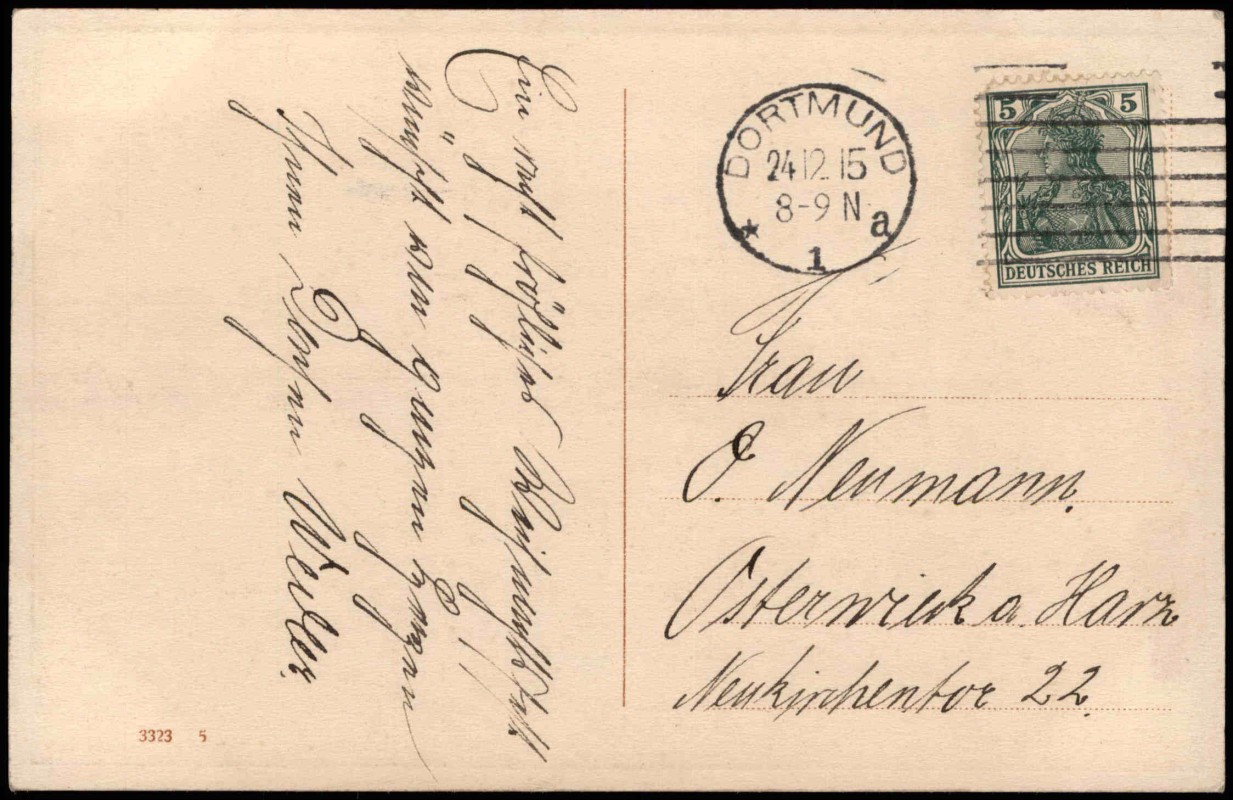 Ein recht fröhliches Weihnachtsfest
wünscht von ganzem Herzen
Ihnen
DORTMUND
24.12.15
8-9 N
* 1 a
5 5
DEUTSCHES REICH
Frau
O. Neumann.
Osterwieck a. Harz
Neukirchentor 22.
3323 5